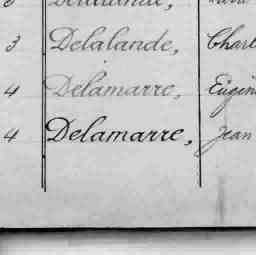 3 Delalande, Charl
4 Delamarre, Eugèn
4 Delamarre, Jean